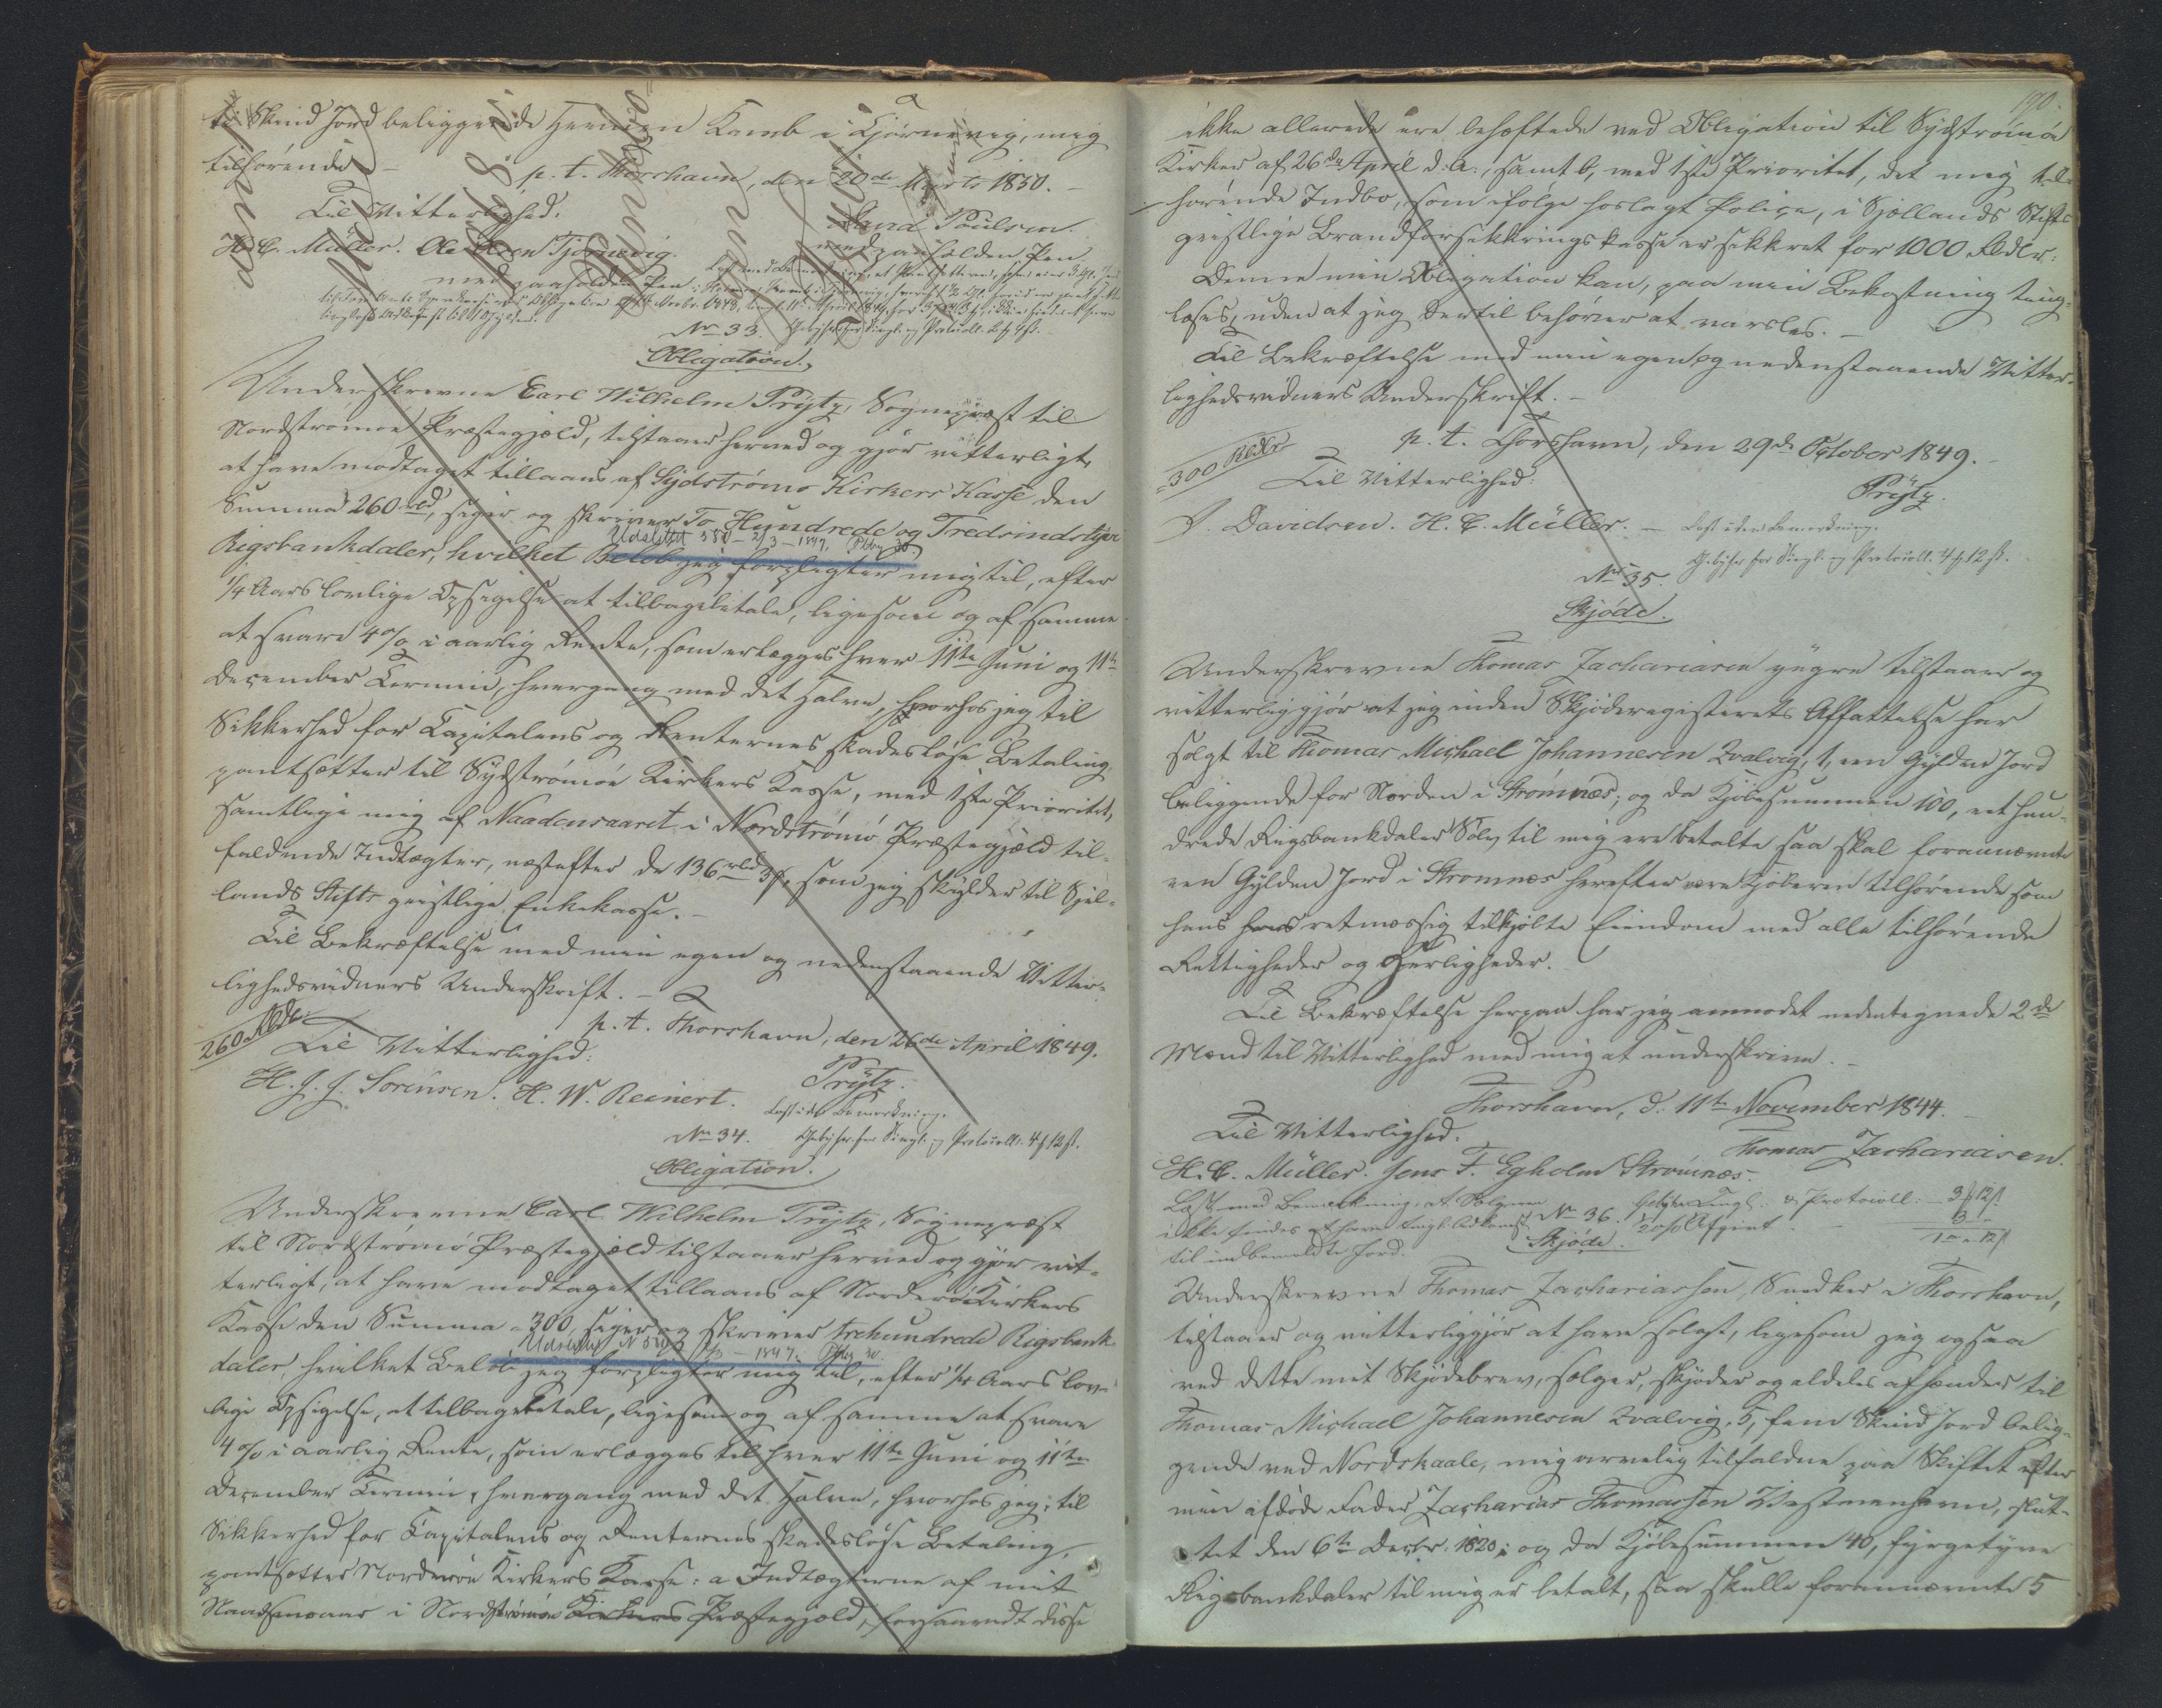 ti Skind Jord beliggende Heimen Kamb i Tjørnevig, mig
tilhørende.
p. t. Thorshavn, den 20de Marts 1850.
Til Vitterlighed:
Poulsen.
H. C. Müller. Ole Tjørnevig. med paaholden Pen.
med paaholden Pen.
No 33. Gebyhr for Tingl. og Protocoll.
Obligation.
Underskrevne Carl Wilhelm Prÿtz, Sognepræst til
Nordstrømøe Præstegjæld, tilstaaer herved og gjør vitterligt,
at have modtaget tillaans af Sydstrømø Kirkers Kasse den
Summa 260 rbd, siger og skriver To Hundrede og Tredsindstyve
Udslettet 2/3 – 1897.
Rigsbankdaler, hvilket Beløb jeg forpligter mig til, efter
1/4 Aars lovlige Opsigelse at tilbagebetale, ligesom og af samme
at svare 4 % i aarlig Rente, som erlægges hver 11te Juni og 11te
December Termin, hvergang med det Halve, hvorhos jeg til
Sikkerhed for Capitalens og Renternes skadesløse Betaling,
pantsætter til Sydstrømøe Kirkers Kasse, med 1ste Prioritet,
samtlige mig af Naadensaaret i Nordstrømø Præstegjæld til-
faldende Indtægter, næstefter de 136 rbd som jeg skylder til Sjæl-
lands Stifts geistlige Enkekasse.
Til Bekræftelse med min egen og nedenstaaende Vitter-
lighedsvidners Underskrift.
260 Rbdr.
p. t. Thorshavn, den 26de April 1849.
Til Vitterlighed:
Prÿtz.
H. J. J. Sørensen. H. W. Reinert. Læst uden Bemærkning.
No 34. Gebyhr for Tingl. og Protocoll. 4 # 12 ß.
Obligation.
Underskrevne Carl Wilhelm Prÿtz, Sognepræst
til Nordstrømø Præstegjæld tilstaaer herved og gjør vit-
terligt, at have modtaget tillaans af Norderø Kirkers
Kasse den Summa 300, siger og skriver trehundrede Rigsbank
Udslettet 2/3 – 1897.
daler, hvilket Beløb jeg forpligter mig til, efter 1/4 Aars lov-
lige Opsigelse, at tilbagebetale, ligesom og af samme at svare
4 % i aarlig Rente, som erlægges til hver 11te Juni og 11te
December Termin, hvergang med det Halve, hvorhos jeg, til
Sikkerhed for Capitalens og Renternes skadesløse Betaling,
pantsætter Norderøe Kirkers Kasse: a Indtægterne af mit
Naadsensaar i Nordstrømøe Kirkers Præstegjæld, forsaavidt disse
190.
ikke allerede ere behæftede ved Obligation til Sydstrømøe
Kirker af 26de April d. A., samt b, med 1ste Prioritet, det mig til-
hørende Indbo, som ifølge forlagt Police, i Sjællands Stifts
geistlige Brandforsikkringskasse er sikkret for 1000 Rbdlr:
Denne min Obligation kan, paa min Bekostning ting-
læses, uden at jeg dertil behøver at varsles.
Til Bekræftelse med min egen og nedenstaaende Vitter-
lighedsvidners Underskrift.
p. t. Thorshavn, den 29de October 1849.
300 Rbdlr
Til Vitterlighed:
Prÿtz.
J. Davidsen. H. C. Müller. Læst uden Bemærkning.
Gebyhr for Tingl. og Protocoll. 4 # 12 ß.
No 35.
Skjøde.
Underskrevne Thomas Zachariasen yngre tilstaaer og
vitterliggjør at jeg inden Skjøderegisterets Affattelse har
solgt til Thomas Michael Johannesen Qvalvig, 1, een Gylden Jord
beliggende for Norden i Strømnæs; og da Kjøbesummen 100, eet hun-
drede Rigsbankdaler Sølv til mig ere betalte saa skal forannævnte
een Gylden Jord i Strømnæs herefter være Kjøberen tilhørende som
hans hans retmæssig tilkjøbte Eiendom med alle tilhørende
Rettigheder og Herligheder.
Til Bekræftelse herpaa har jeg anmodet nedentegnede 2de
Mænd til Vitterlighed med mig at underskrive.
Thorshavn, d. 11te November 1844.
Til Vitterlighed.
Thomas Zachariasen.
H. C. Müller. Jens F. Egholm Strømnæs.
Læst med Bemærkning, at Sælgeren
ikke findes at have tingl. Adkomst
til indbemeldte Jord.
Gebyhr Tingl. & Protocoll: 3 # 12 ß
No 36.
Skjøde.
Underskrevne Thomas Zachariassen, Snedker i Thorshavn,
tilstaaer og vitterliggjør at have solgt, ligesom jeg ogsaa
ved dette mit Skjødebrev, sælger, skjøder og aldeles afhænder til
Thomas Michael Johannesen Qvalvig, 5, fem Skind Jord belig-
gende ved Nordskaale, mig arvelig tilfaldne paa Skiftet efter
min afdøde Fader Zacharias Thomassen Vestmenhavn, slut-
tet den 6te Decbr. 1820; og da Kjøbesummen 40, fyrgetyve
Rigsbankdaler til mig er betalt, saa skulle forannævnte 5